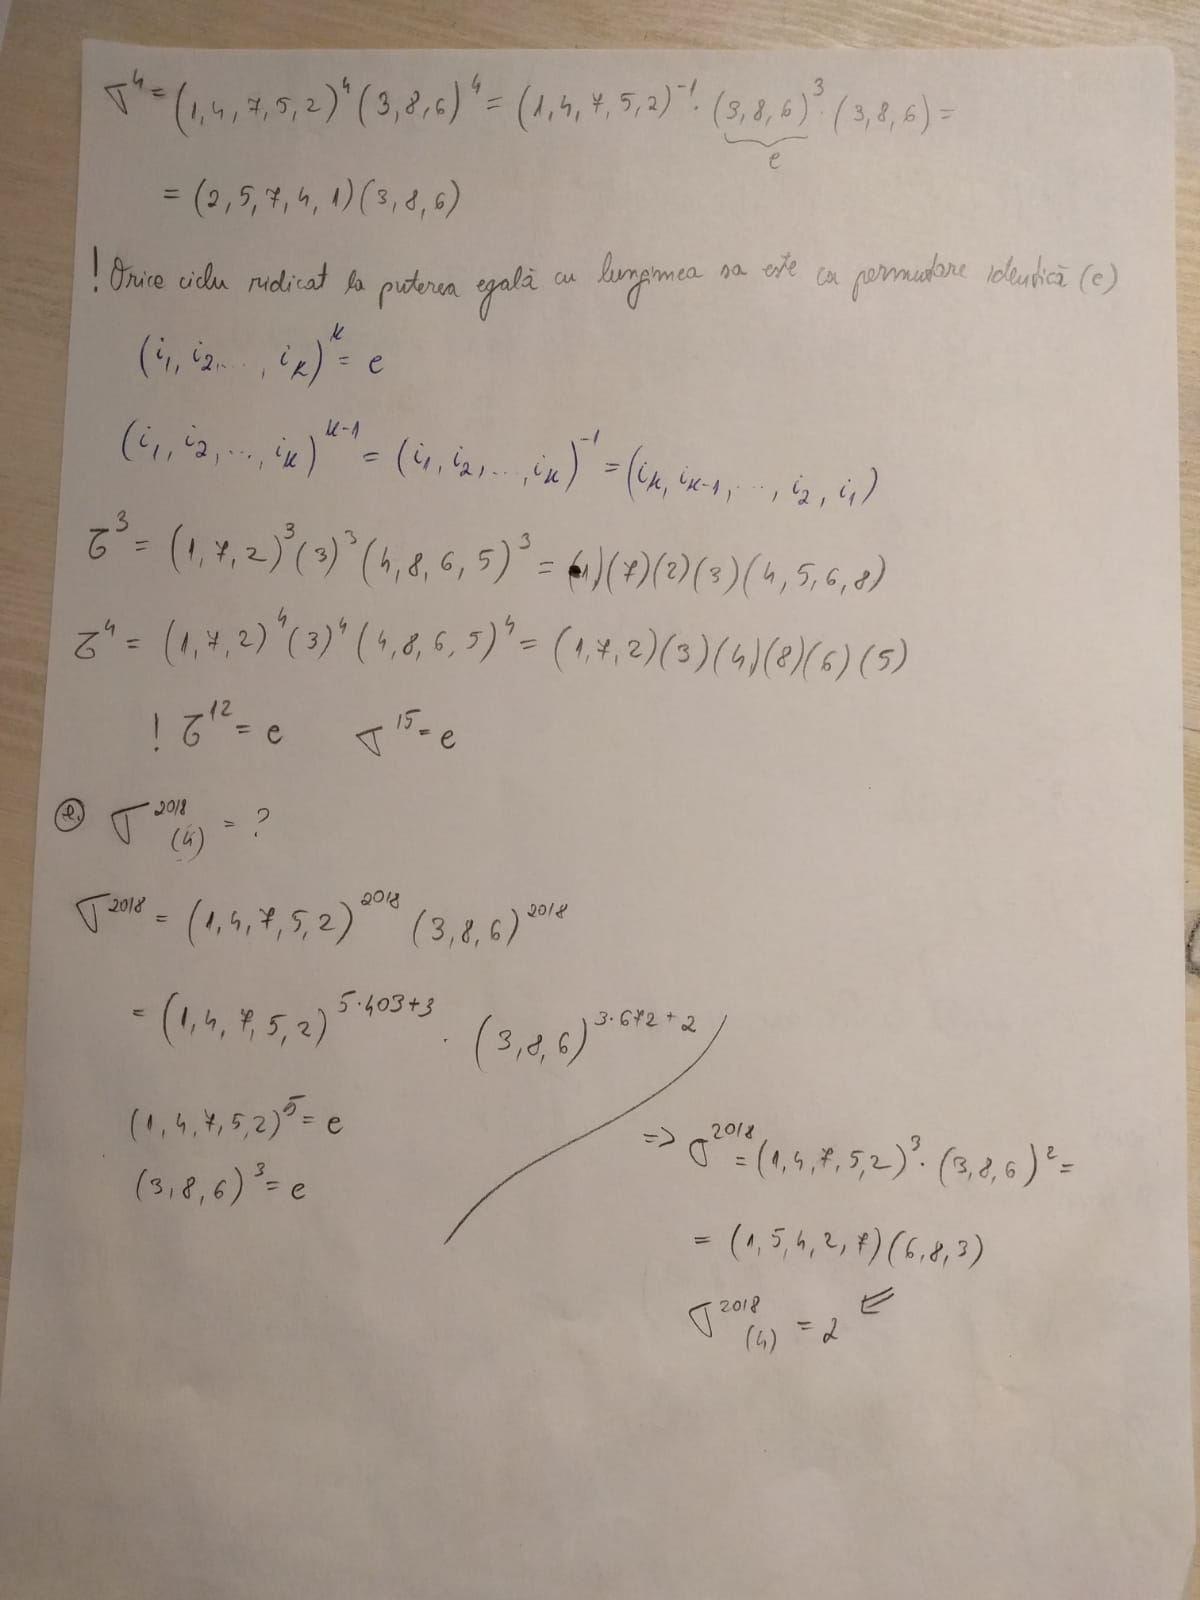 σ⁴ = (1,4,7,5,2)⁴ (3,8,6)⁴ = (1,4,7,5,2)⁻¹ · (3,8,6)³ · (3,8,6) =
e
= (2,5,7,4,1)(3,8,6)
! Orice ciclu ridicat la puterea egală cu lungimea sa este ca permutare identică (e)
(i₁, i₂, ..., iₖ)ᵏ = e
(i₁, i₂, ..., iₖ)ᵏ⁻¹ = (i₁, i₂, ..., iₖ)⁻¹ = (iₖ, iₖ₋₁, ..., i₂, i₁)
τ³ = (1,7,2)³ (3)³ (4,8,6,5)³ = (1)(7)(2)(3)(4,5,6,8)
τ⁴ = (1,7,2)⁴ (3)⁴ (4,8,6,5)⁴ = (1,7,2)(3)(4)(8)(6)(5)
! τ¹² = e σ¹⁵ = e
e. σ²⁰¹⁸(4) = ?
σ²⁰¹⁸ = (1,4,7,5,2)²⁰¹⁸ (3,8,6)²⁰¹⁸
= (1,4,7,5,2)^5·403+3 · (3,8,6)^3·672+2
(1,4,7,5,2)⁵ = e
(3,8,6)³ = e
=> σ²⁰¹⁸ = (1,4,7,5,2)³ · (3,8,6)² =
= (1,5,4,2,7)(6,8,3)
σ²⁰¹⁸(4) = 2